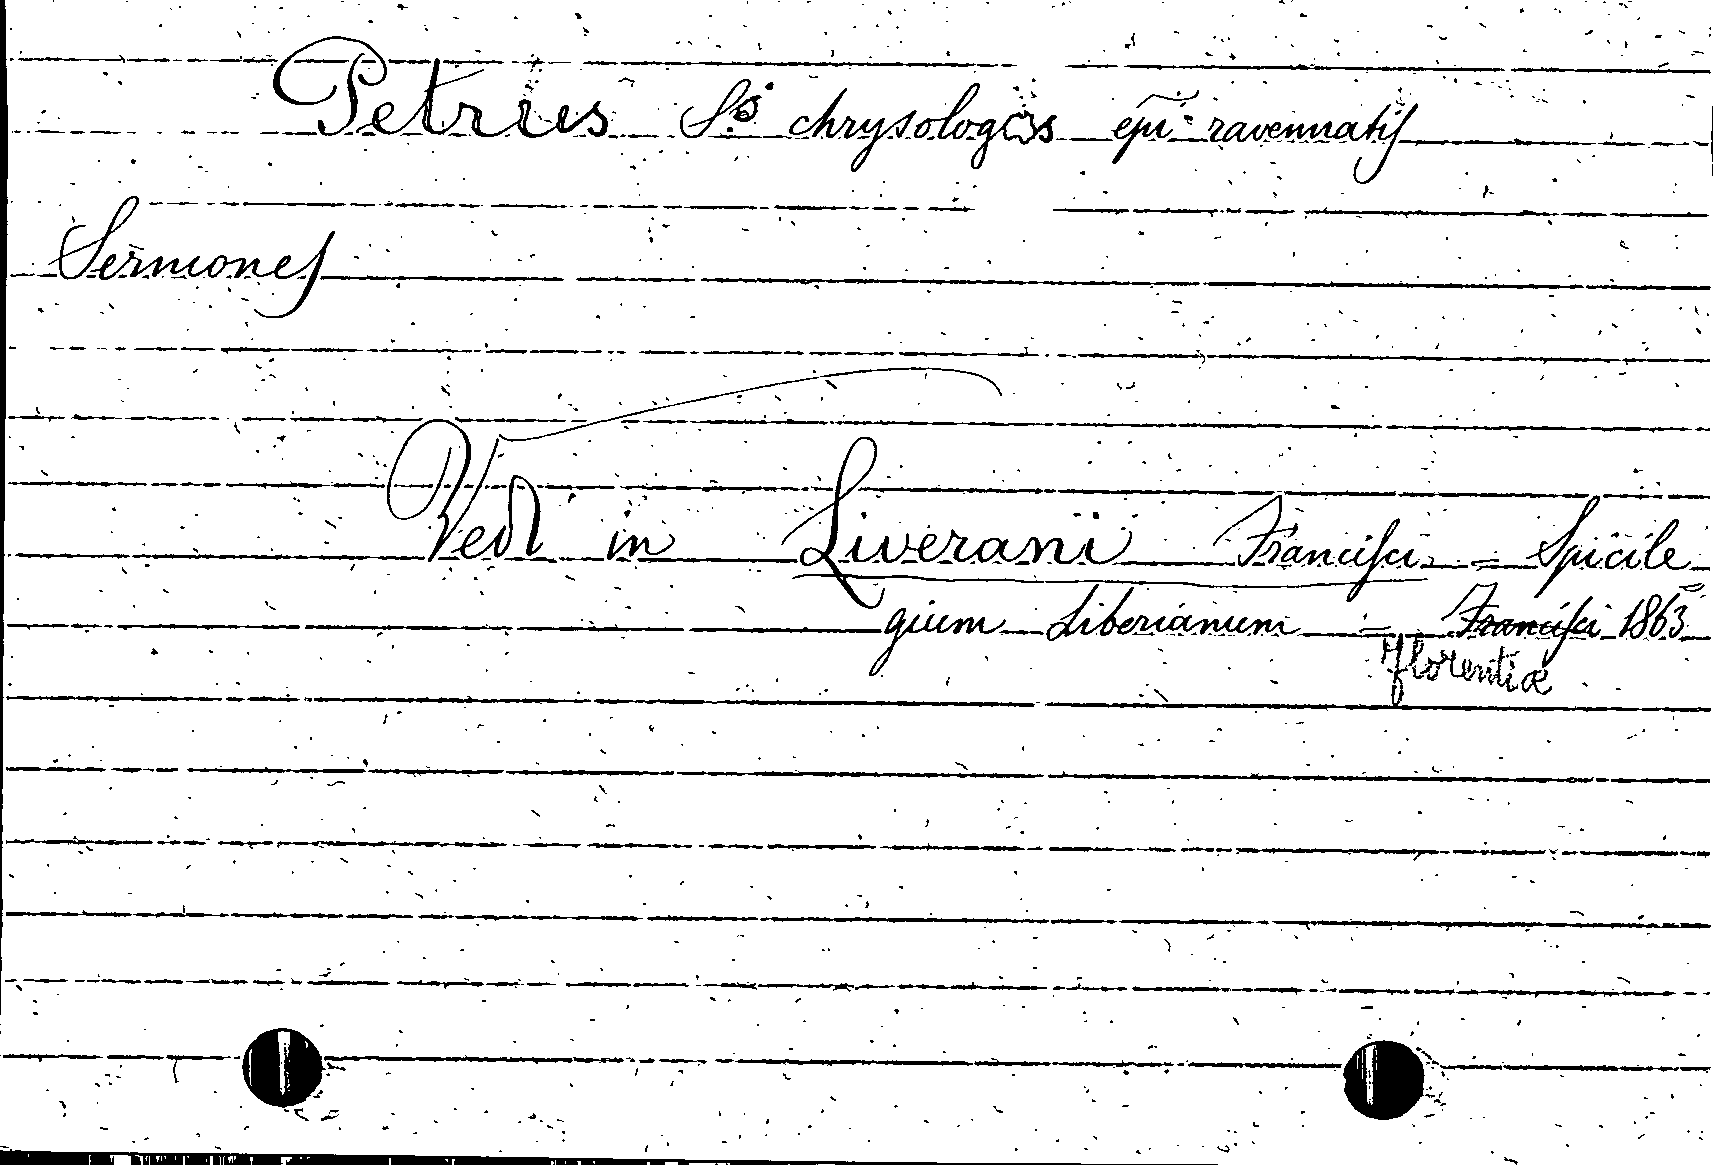 Petrus S.s chrysologus epi ravennatis
Sermones
Ved in Liverani Francisci = Spicile
gium Liberianum – Francisci 1863
Florentiæ